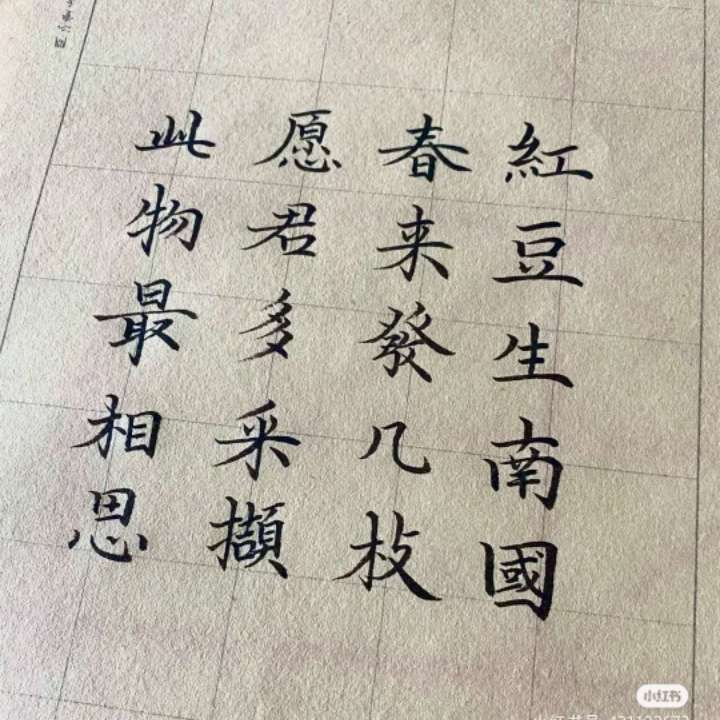 紅豆生南國
春来發几枝
愿君多采擷
此物最相思
小红书